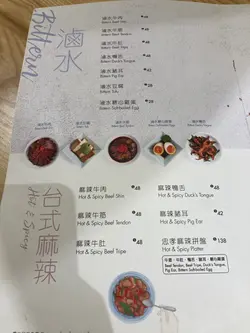 滷水
Bittern
滷水牛肉
48
滷水牛筋
48
Bittern Beef Tendon
滷水牛肚
48
Bittern Beef Tripe
滷水鴨舌
48
Bittern Duck's Tongue
滷水豬耳
42
Bittern Pig Ear
滷水豆腐
28
滷水糖心蛋
28
台式麻辣
Hot & Spicy
麻辣牛肉
48
Hot & Spicy Beef Shin
麻辣牛筋
48
Hot & Spicy Beef Tendon
麻辣牛肚
48
Hot & Spicy Beef Tripe
麻辣鴨舌
48
Hot & Spicy Duck's Tongue
麻辣豬耳
42
Hot & Spicy Pig Ear
忠孝麻辣拼盤
138
Hot & Spicy Platter
牛筋、牛肚、鴨舌、豬耳、糖心滷蛋
Beef Tendon, Beef Tripe, Duck's Tongue,
Pig Ear, Bittern Softboiled Egg